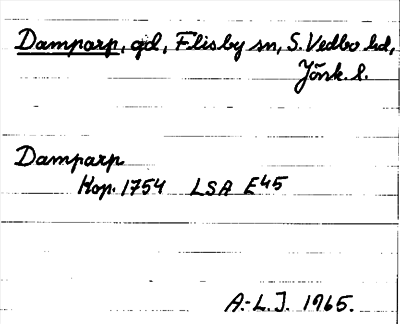 Damparp, gd, Flisby sn, S. Vedbo hd,
Jönk. l.
Damparp
Kop. 1754 LSA E45
A.-L.J. 1965.